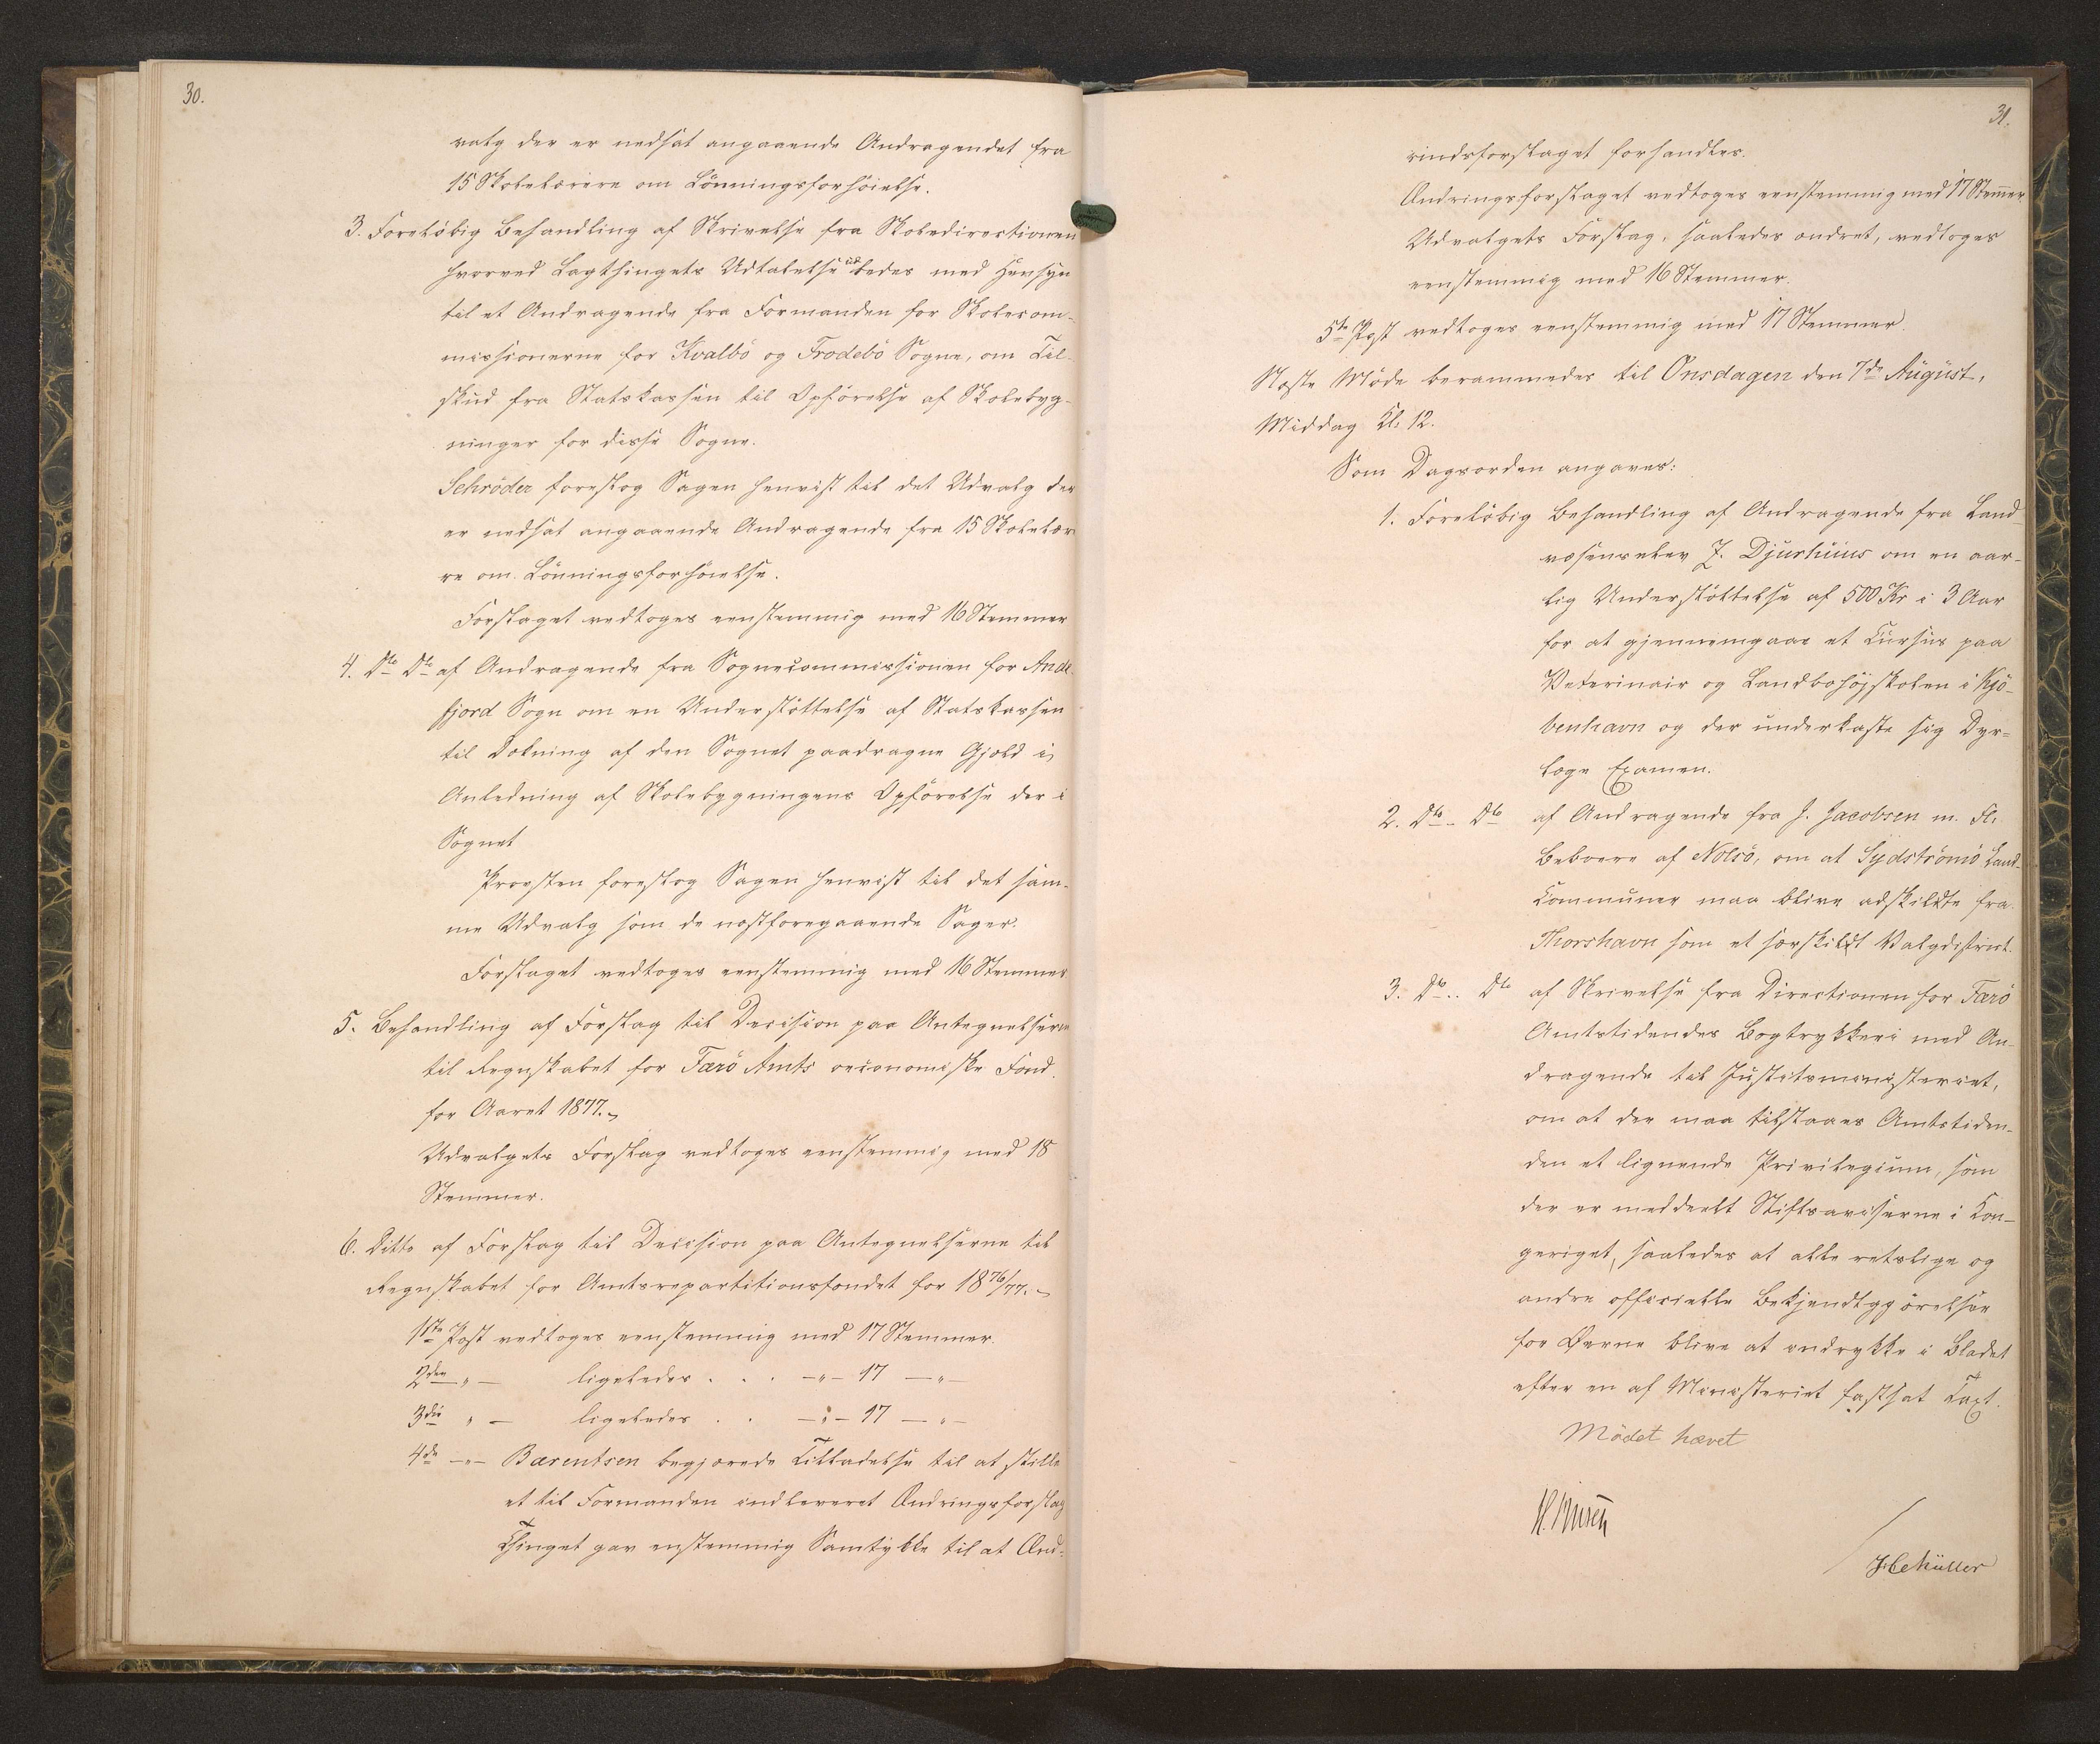 30.
valg der er nedsat angaaende Andragendet fra
15 Skolelærere om Lönningsforhöielse.
3. Forelöbig Behandling af Skrivelse fra Skoledirectionen
hvorved Lagthingets Udtalelse udbedes med Hensyn
til et Andragende fra Formanden for Skolecom-
missionerne for Kvalbö og Frodebö Sogne, om Til-
skud fra Statskassen til Opförelse af Skolebyg-
ninger for disse Sogne.
Schröder foreslog Sagen henvist til det Udvalg der
er nedsat angaaende Andragende fra 15 Skolelær
re om Lönningsforhöielse.
Forslaget vedtoges eenstemmig med 16 Stemmer
4. Dto Dto af Andragende fra Sognecommissionen for Ande-
fjord Sogn om en Understöttelse af Statskassen
til Dækning af den Sognet paadragne Gjæld i
Anledning af Skolebygningens Opförelse der i
Sognet
Provsten foreslog Sagen henvist til det sam-
me Udvalg som de næstforegaaende Sager.
Forslaget vedtoges eenstemmig med 16 Stemmer
5. Behandling af Forslag til Decision paa Antegnelserne
til Regnskabet for Færö Amts oeconomiske Fond
for Aaret 1877.
Udvalgets Forslag vedtoges eenstemmig med 18
Stemmer.
6. Ditto af Forslag til Decision paa Antegnelserne til
Regnskabet for Amtsrepartitionsfondet for 1876/77.
1ste Post vedtoges eenstemmig med 17 Stemmer.
2den „ — ligeledes . . . —„— 17 —„—
3die „ — ligeledes . . —„— 17 —„—
4de —„— Bærentsen begjærede Tilladelse til at stille
et til Formanden indleveret Ændringsforslag
Thinget gav enstemmig Samtykke til at Æn-
31.
rindsforslaget forhandles.
Ændringsforslaget vedtoges eenstemmig med 17 Stemer
Udvalgets Forslag, saaledes ændret, vedtoges
eenstemmig med 16 Stemmer.
5te Post vedtoges eenstemmig med 17 Stemmer.
Næste Möde berammedes til Onsdagen den 7de August,
Middag Kl. 12.
Som Dagsorden angaves:
1. Forelöbig Behandling af Andragende fra Land-
væsenselev J. Djurhuus om en aar-
lig Understöttelse af 500 Kr i 3 Aar
for at gjennemgaae et Cursus paa
Veterinair og Landbohöjskolen i Kjö-
benhavn og der underkaste sig Dyr-
læge Examen.
2. Dto.. Dto af Andragende fra J. Jacobsen m. Fl.
Beboere af Nolsö, om at Sydströmö Land-
Communer maa blive adskildte fra
Thorshavn som et særskildt Valgdistrict.
3. Dto.. Dto af Skrivelse fra Directionen for Færö
Amtstidendes Bogtrykkeri med An-
dragende til Justitsministeriet,
om at der maa tilstaaes Amtstiden-
den et lignende Privilegium, som
der er meddeelt Stiftsaviserne i Kon-
geriget, saaledes at alle retslige og
andre officielle Bekjendtgjörelser
for Øerne blive at indrykke i Bladet
efter en af Ministeriet fastsat Taxt.
Mödet hævet
J. C. Müller